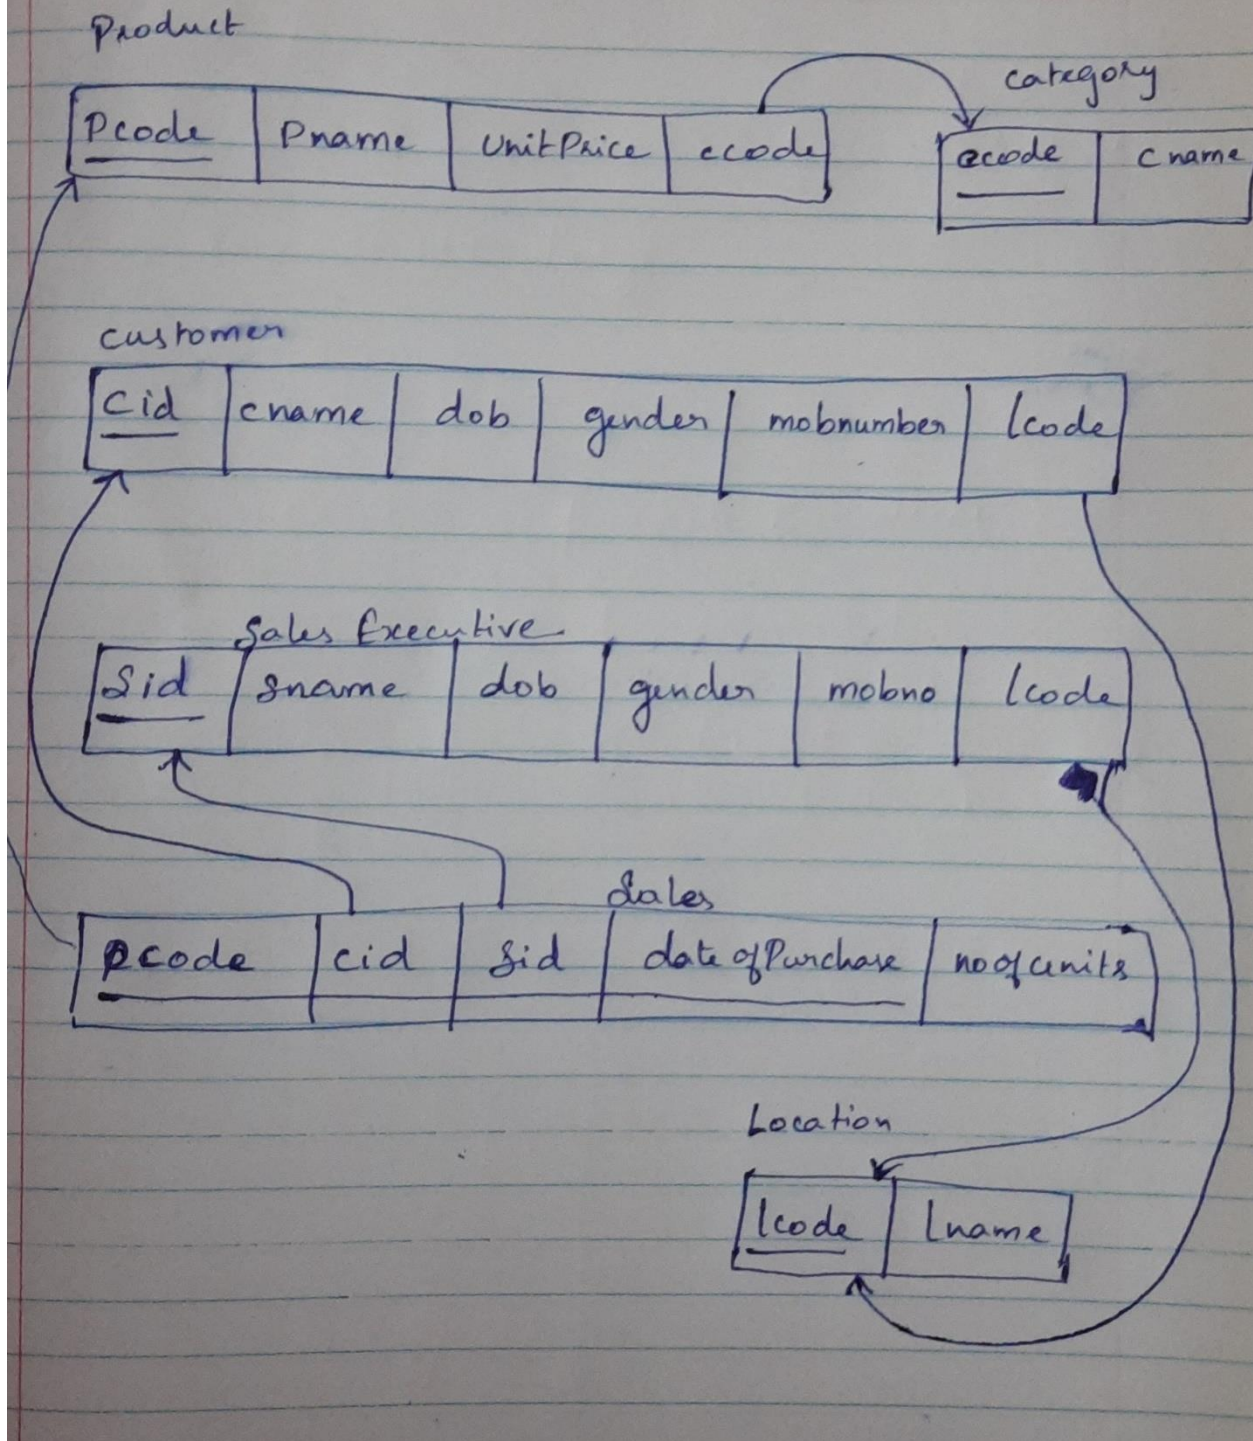 Product
category
Pcode Pname UnitPrice ccode
ccode cname
customer
cid cname dob gender mobnumber lcode
Sales Executive
Sid Sname dob gender mobno lcode
Sales
pcode cid Sid date of Purchase no of units
Location
lcode lname